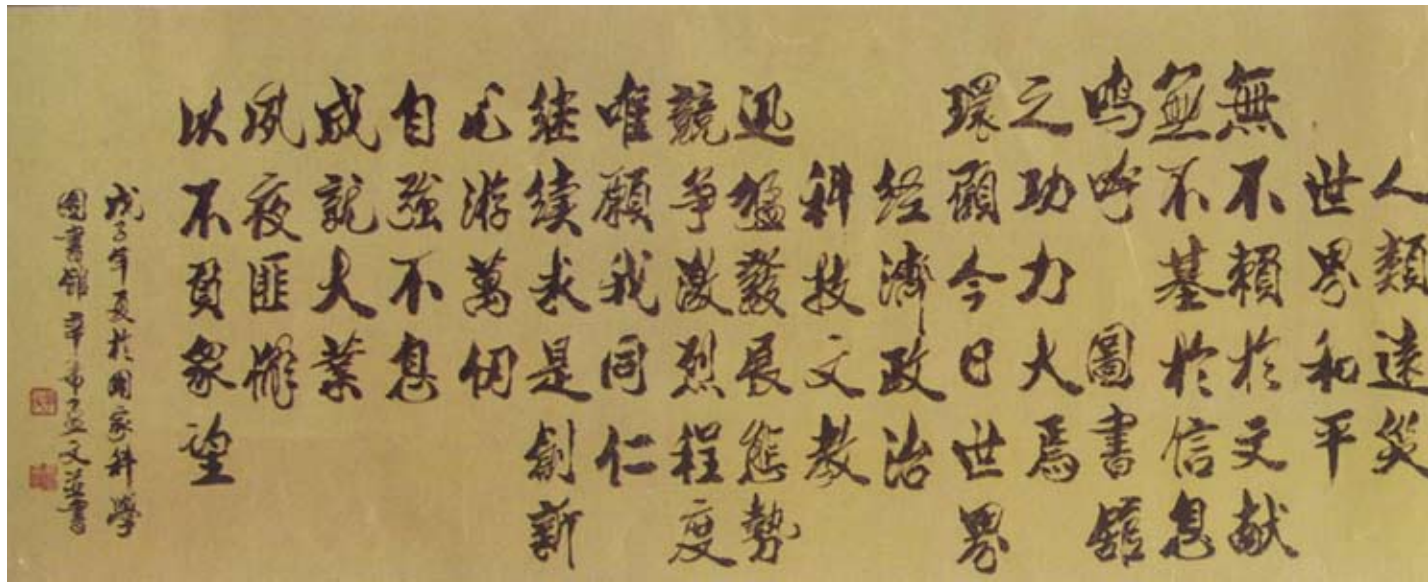 人類遠災
世界和平
無不賴於文献
無不基於信息
鸣呼 圖書舘
之功力大焉
環顾今日世界
经濟政治
科技文教
迅猛發展態勢
競争激烈程度
唯願我同仁
继续求是創新
心游萬仞
自強不息
成就大業
夙夜匪懈
以不負衆望
戊子年夏於国家科學
圖書館 辛希孟文並書